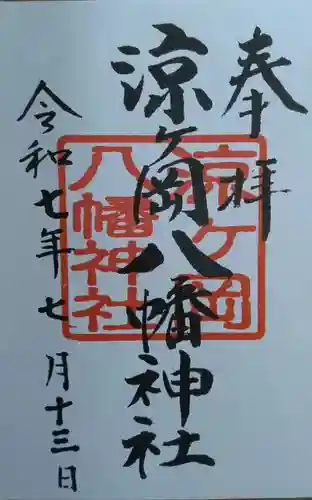 奉拝
涼ヶ岡八幡神社
令和七年七月十三日
涼ケ岡
八幡神社